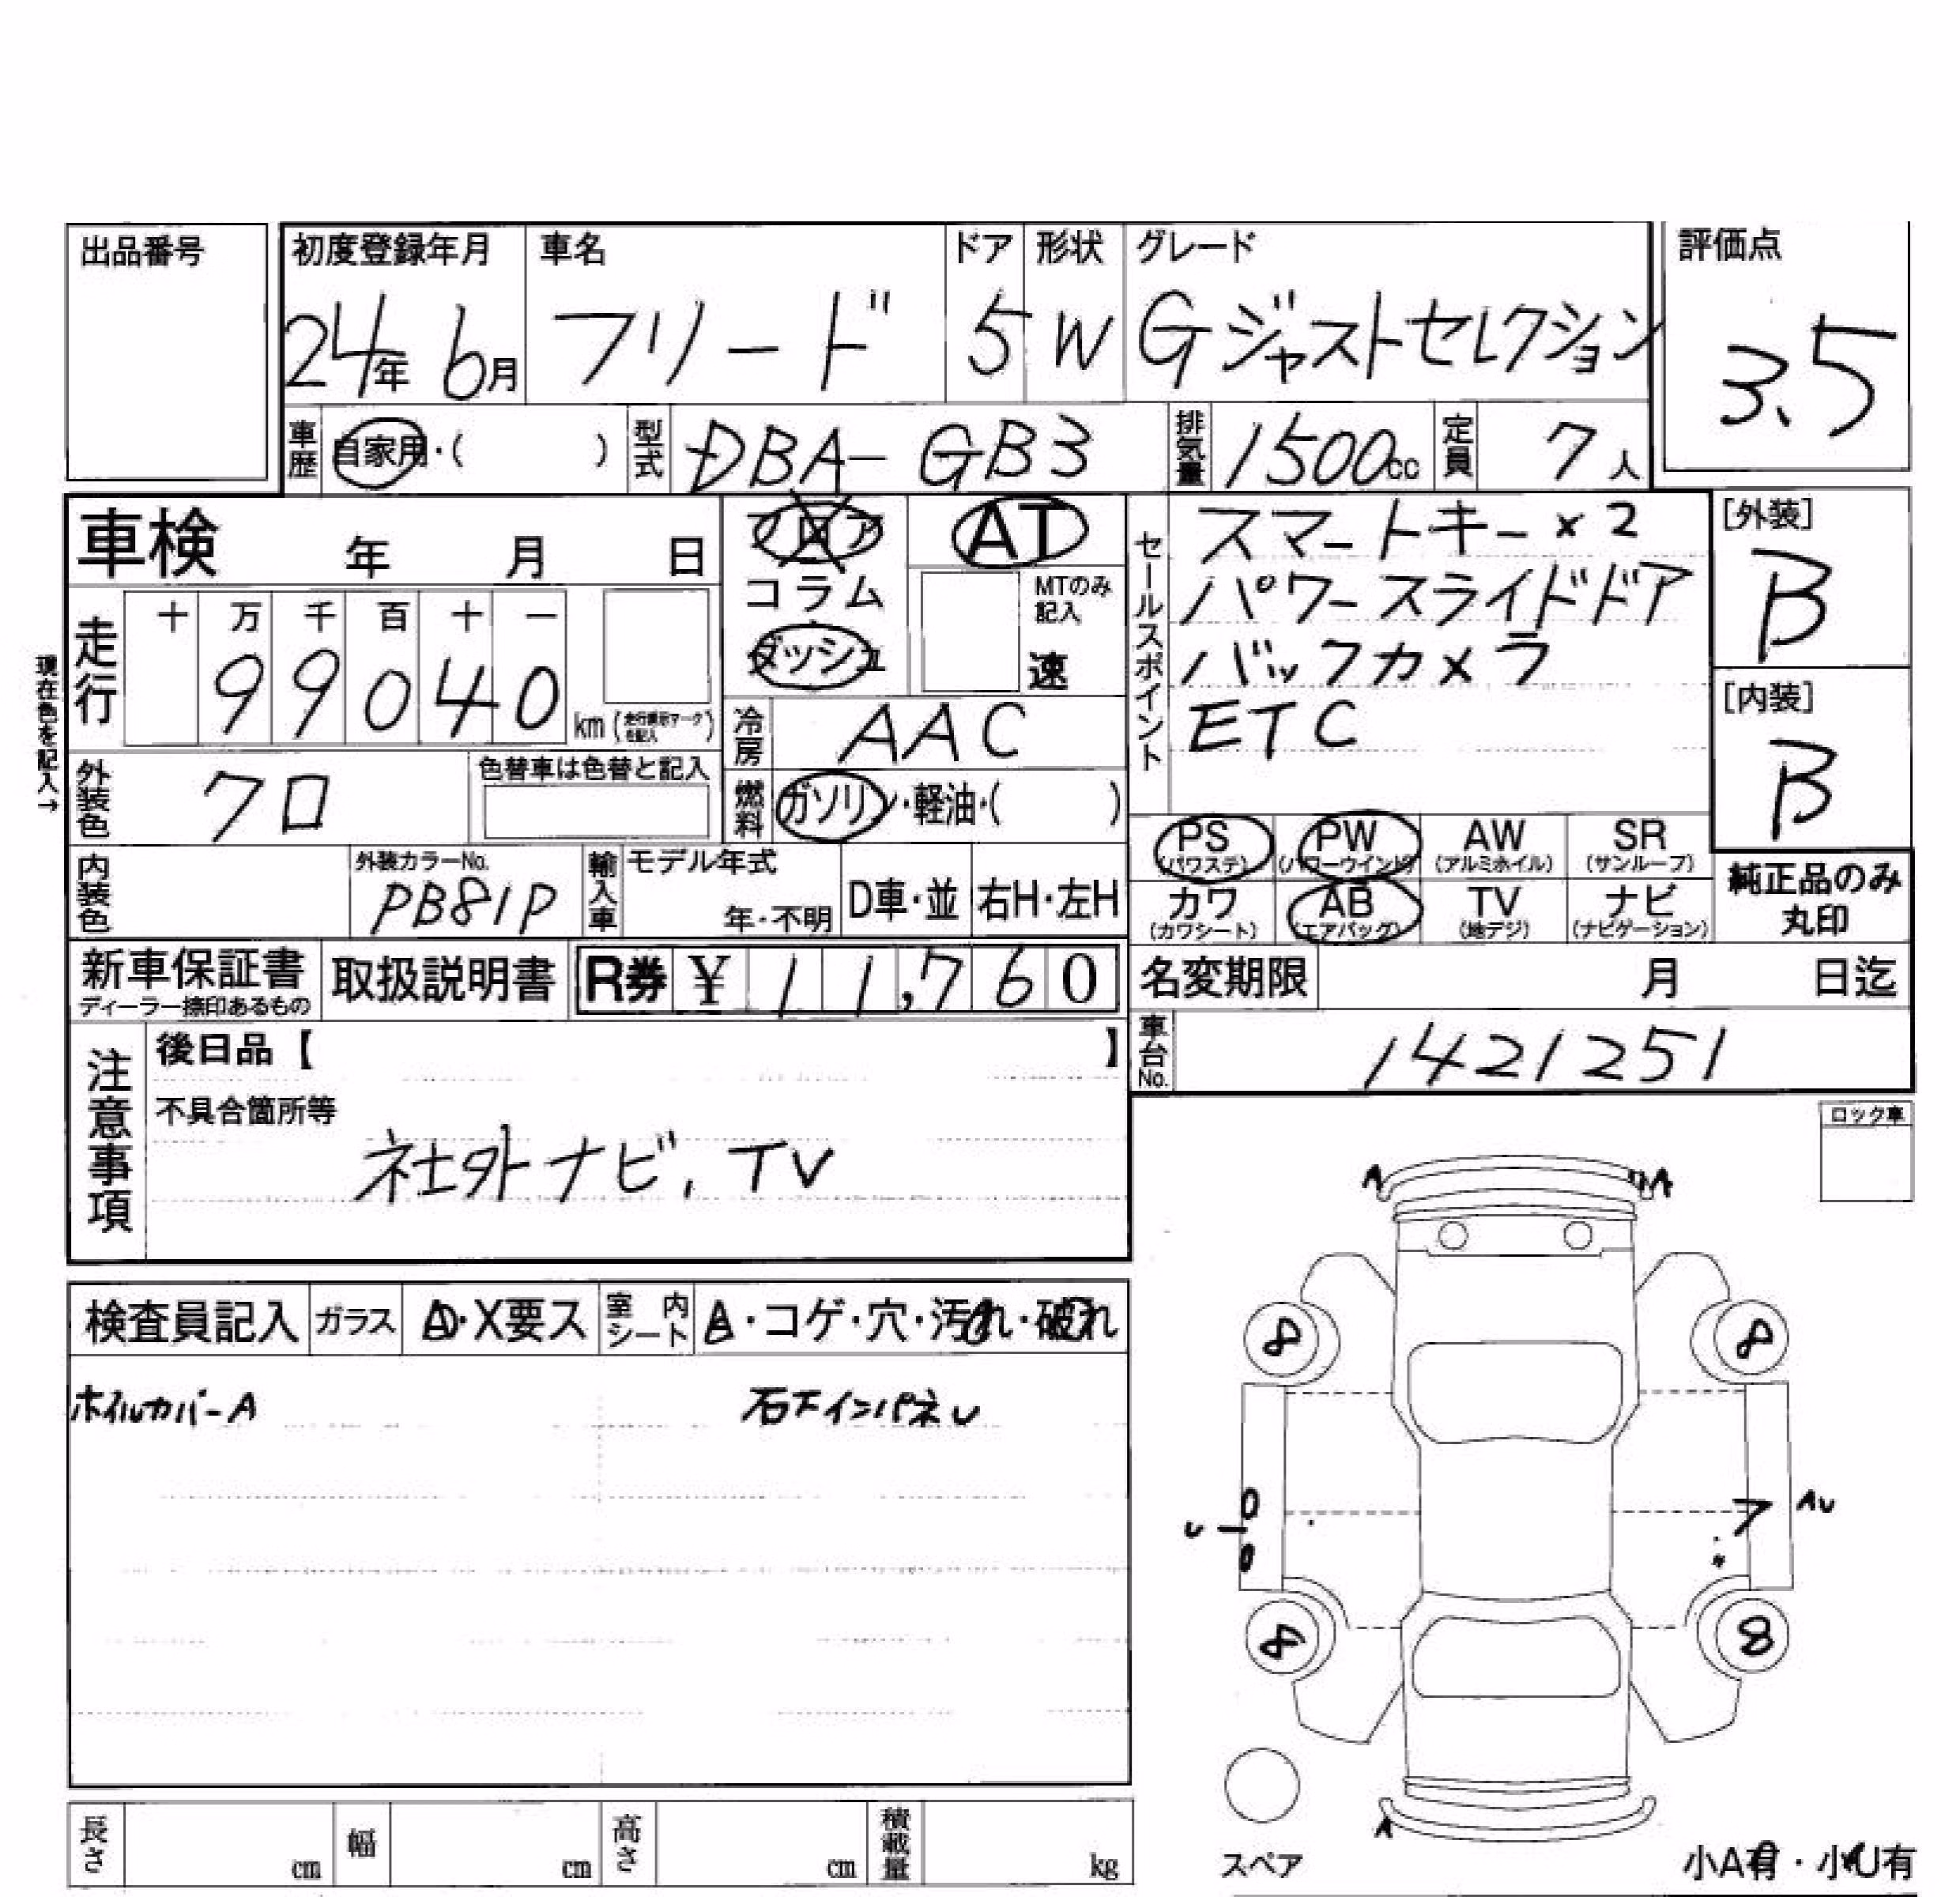 出品番号
初度登録年月 車名 ドア 形状 グレード 評価点
24年 6月 フリード 5 W Gジャストセレクション 3.5
車歴 自家用・( ) 型式 DBA-GB3 排気量 1500cc 定員 7人
車検 年 月 日
フロア
コラム
ダッシュ
AT
MTのみ記入
速
セールスポイント
スマートキー×2
パワースライドドア
バックカメラ
ETC
[外装]
B
[内装]
B
現在色を記入→
走行 十 万 千 百 十 一
99040 km
冷房 AAC
外装色 クロ 色替車は色替と記入
燃料 ガソリン・軽油・( )
PS (パワステ) PW (パワーウインド) AW (アルミホイル) SR (サンルーフ)
カワ (カワシート) AB (エアバッグ) TV (地デジ) ナビ (ナビゲーション)
純正品のみ
丸印
内装色 外装カラーNo. PB81P 輸入車 モデル年式 年・不明 D車・並 右H・左H
新車保証書 取扱説明書 R券 ¥ 11,760
ディーラー捺印あるもの
名変期限 月 日迄
車台No. 1421251
注意事項
後日品【 】
不具合箇所等
社外ナビ、TV
ロック車
A A
検査員記入 ガラス A・X要ス 室内シート A・コゲ・穴・汚れ・破れ
ホイルカバーA 右下インパネU
8 8
U
7 AU
8 8
A
スペア
長さ cm 幅 cm 高さ cm 積載量 kg
小A有・小U有